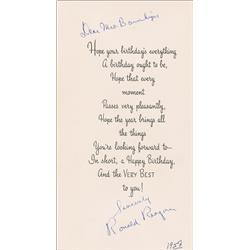 Dear Mrs
Hope your birthday's everything
A birthday ought to be,
Hope that every
moment
Passes very pleasantly,
Hope the year brings all
the things
You're looking forward to—
In short, a Happy Birthday,
And the VERY BEST
to you!
Sincerely
Ronald Reagan
1958